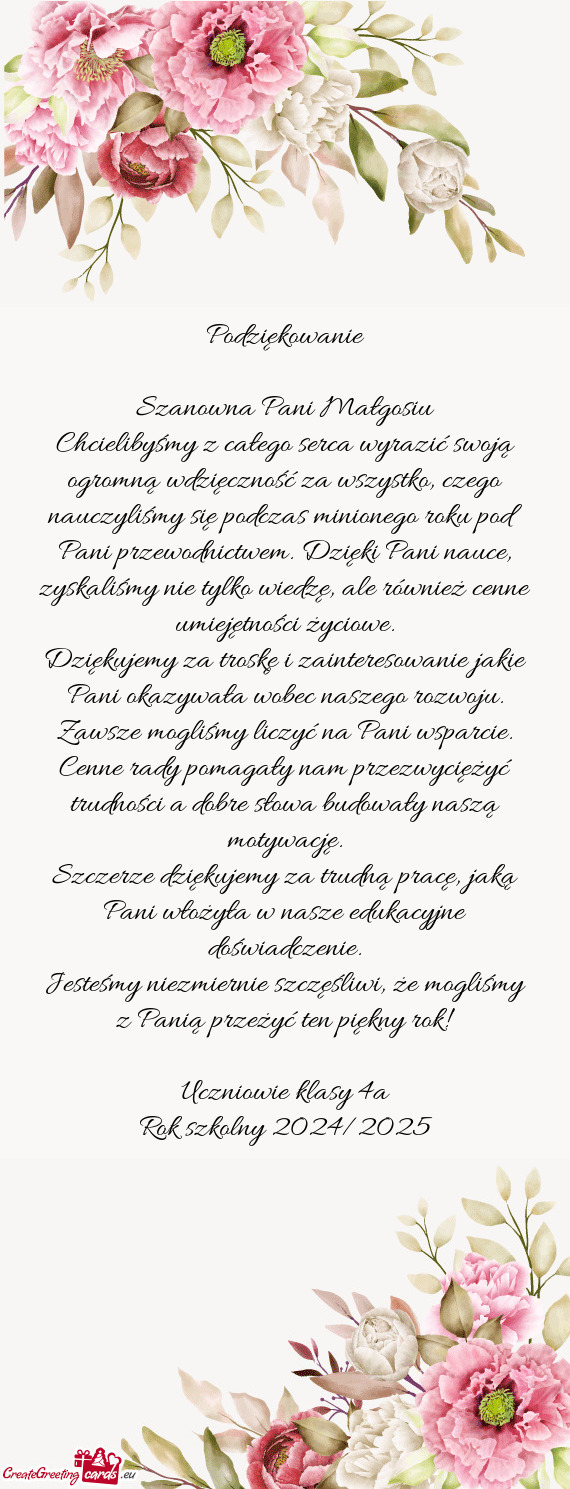 Podziękowanie
Szanowna Pani Małgosiu
Chcielibyśmy z całego serca wyrazić swoją
ogromną wdzięczność za wszystko, czego
nauczyliśmy się podczas minionego roku pod
Pani przewodnictwem. Dzięki Pani nauce,
zyskaliśmy nie tylko wiedzę, ale również cenne
umiejętności życiowe.
Dziękujemy za troskę i zainteresowanie jakie
Pani okazywała wobec naszego rozwoju.
Zawsze mogliśmy liczyć na Pani wsparcie.
Cenne rady pomagały nam przezwyciężyć
trudności a dobre słowa budowały naszą
motywację.
Szczerze dziękujemy za trudną pracę, jaką
Pani włożyła w nasze edukacyjne
doświadczenie.
Jesteśmy niezmiernie szczęśliwi, że mogliśmy
z Panią przeżyć ten piękny rok!
Uczniowie klasy 4a
Rok szkolny 2024/2025
CreateGreeting cards .eu